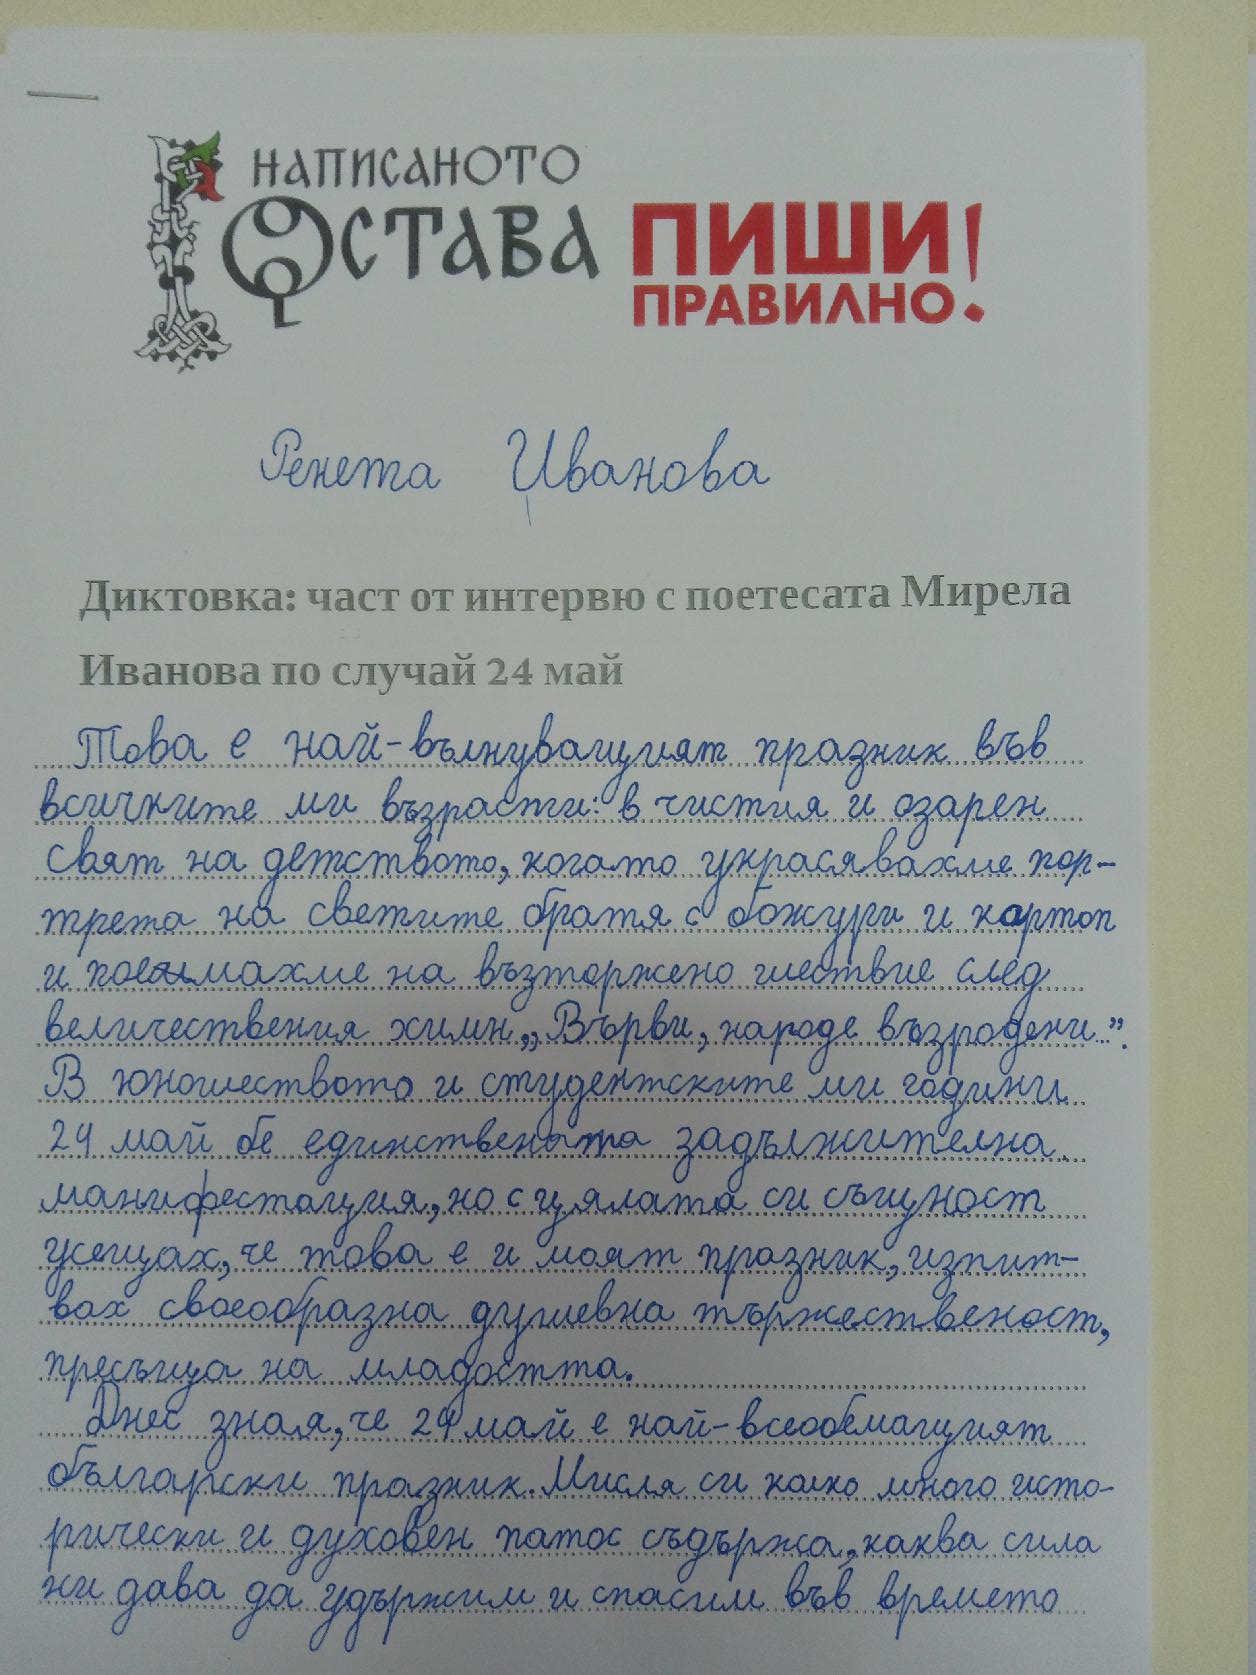 НАПИСАНОТО
ОСТАВА
ПИШИ
ПРАВИЛНО!
Ренета Иванова
Диктовка: част от интервю с поетесата Мирела
Иванова по случай 24 май
Това е най-вълнуващият празник във
всичките ми възрасти: в чистия и озарен
свят на детството, когато украсявахме пор-
трета на светите братя с божури и картоп
и поемахме на възторжено шествие след
величествения химн „Върви, народе възродени...”.
В юношеството и студентските ми години
24 май бе единствената задължителна
манифестация, но с цялата си същност
усещах, че това е и моят празник, изпит-
вах своеобразна душевна тържественост,
пресъща на младостта.
Днес зная, че 24 май е най-всеобемащият
български празник. Мисля си колко много исто-
рически и духовен патос съдържа, каква сила
ни дава да удържим и спасим във времето